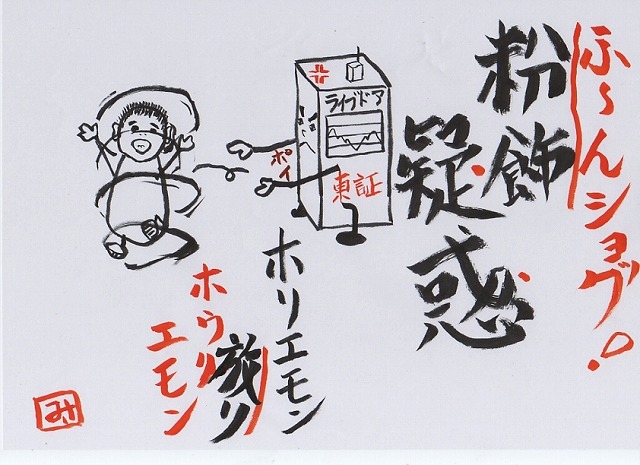 ふ〜んショク!
粉飾
疑惑
ライブドア
東証
ポイ
ホリエモン
放り
ホウリエモン
み